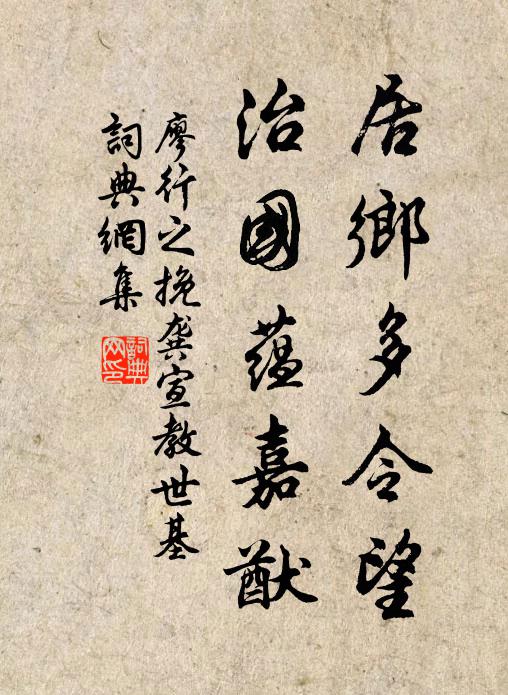 居鄉多令望
治國蘊嘉猷
廖行之挽龔宣教世基
詞典網集
詞典網印